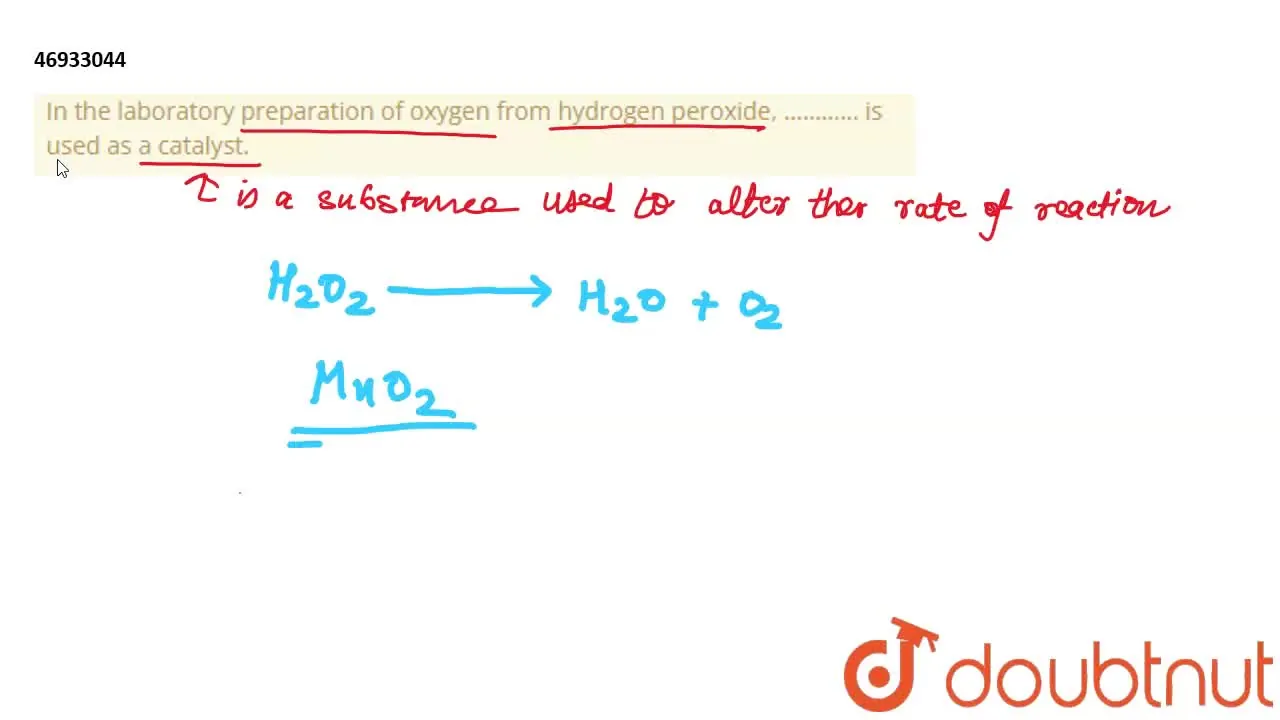 46933044
In the laboratory preparation of oxygen from hydrogen peroxide, ............ is
used as a catalyst.
is a substance used to alter ther rate of reaction
H₂O₂ ⟶ H₂O + O₂
MnO₂
doubtnut